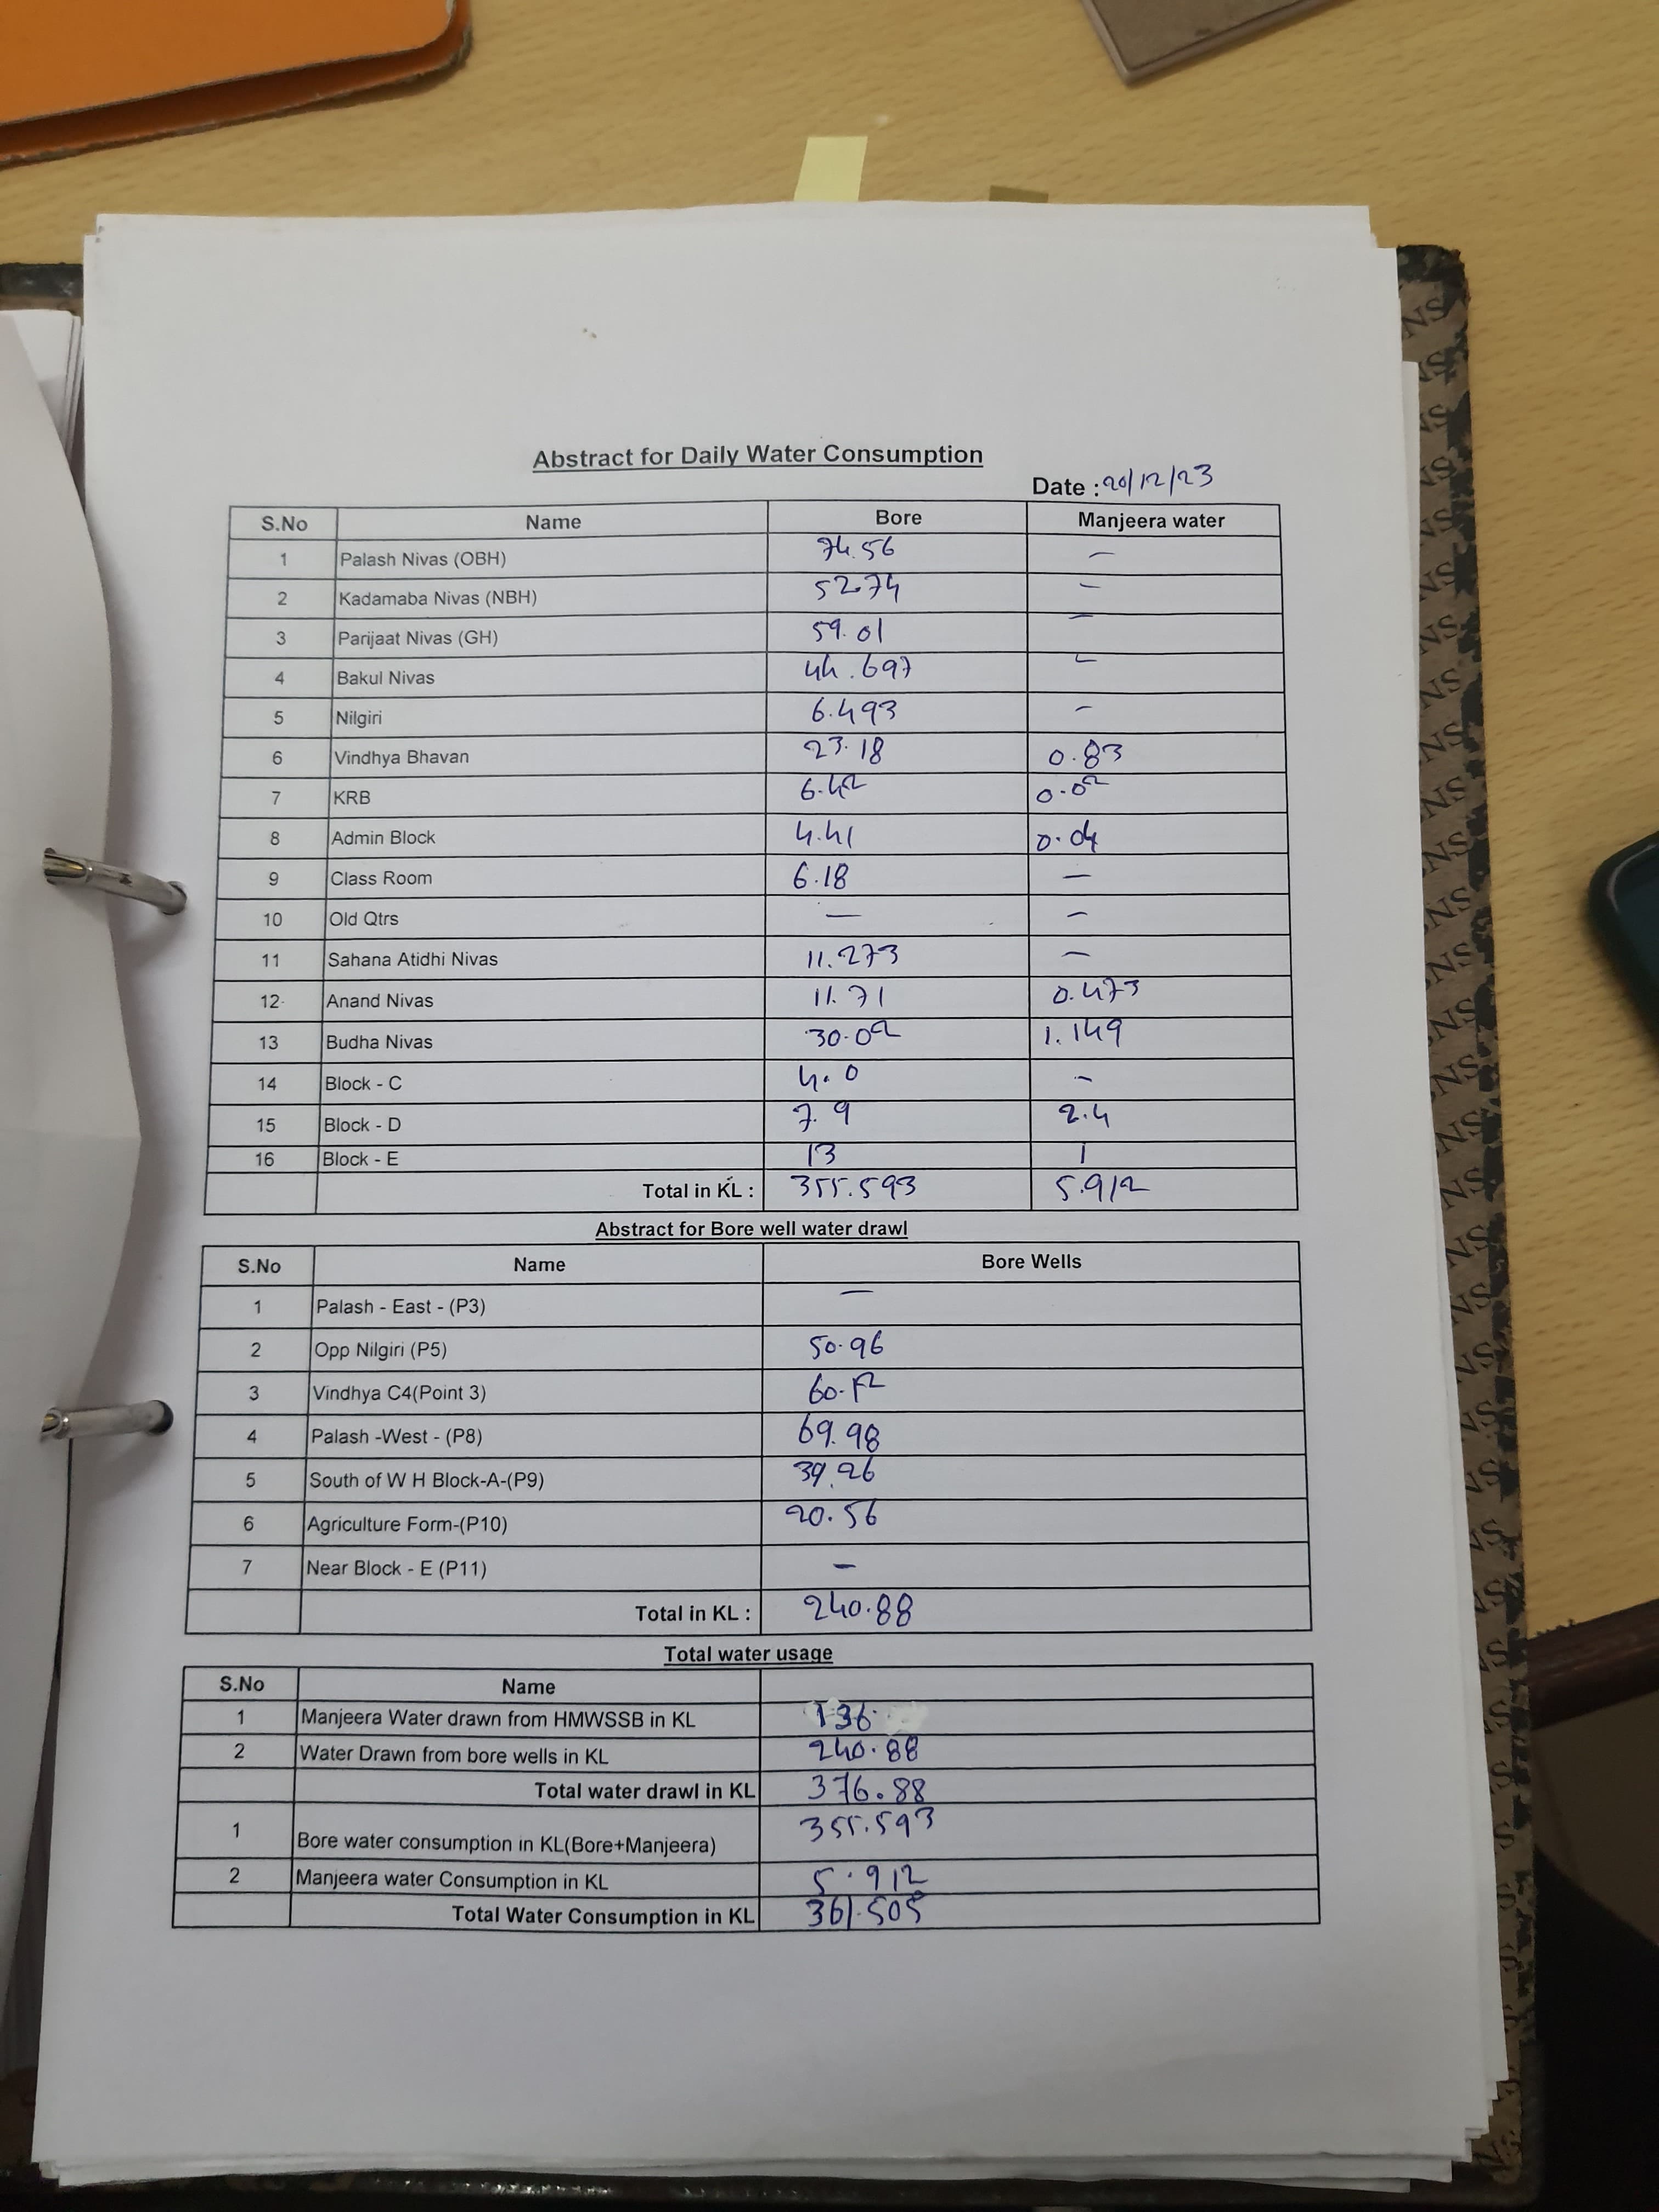 Abstract for Daily Water Consumption
Date : 20/12/23
S.No Name Bore Manjeera water
1 Palash Nivas (OBH) 74.56 —
2 Kadamaba Nivas (NBH) 52.74 —
3 Parijaat Nivas (GH) 59.01 —
4 Bakul Nivas 44.697 —
5 Nilgiri 6.493 —
6 Vindhya Bhavan 23.18 0.83
7 KRB 6.42 0.02
8 Admin Block 4.41 0.04
9 Class Room 6.18 —
10 Old Qtrs — —
11 Sahana Atidhi Nivas 11.273 —
12 Anand Nivas 11.71 0.473
13 Budha Nivas 30.02 1.149
14 Block - C 4.0 -
15 Block - D 7.9 2.4
16 Block - E 13 1
Total in KL : 355.593 5.912
Abstract for Bore well water drawl
S.No Name Bore Wells
1 Palash - East - (P3) —
2 Opp Nilgiri (P5) 50.96
3 Vindhya C4(Point 3) 60.12
4 Palash -West - (P8) 69.98
5 South of W H Block-A-(P9) 39.26
6 Agriculture Form-(P10) 20.56
7 Near Block - E (P11) —
Total in KL : 240.88
Total water usage
S.No Name
1 Manjeera Water drawn from HMWSSB in KL 136
2 Water Drawn from bore wells in KL 240.88
Total water drawl in KL 376.88
1 Bore water consumption in KL(Bore+Manjeera) 355.593
2 Manjeera water Consumption in KL 5.912
Total Water Consumption in KL 361.505